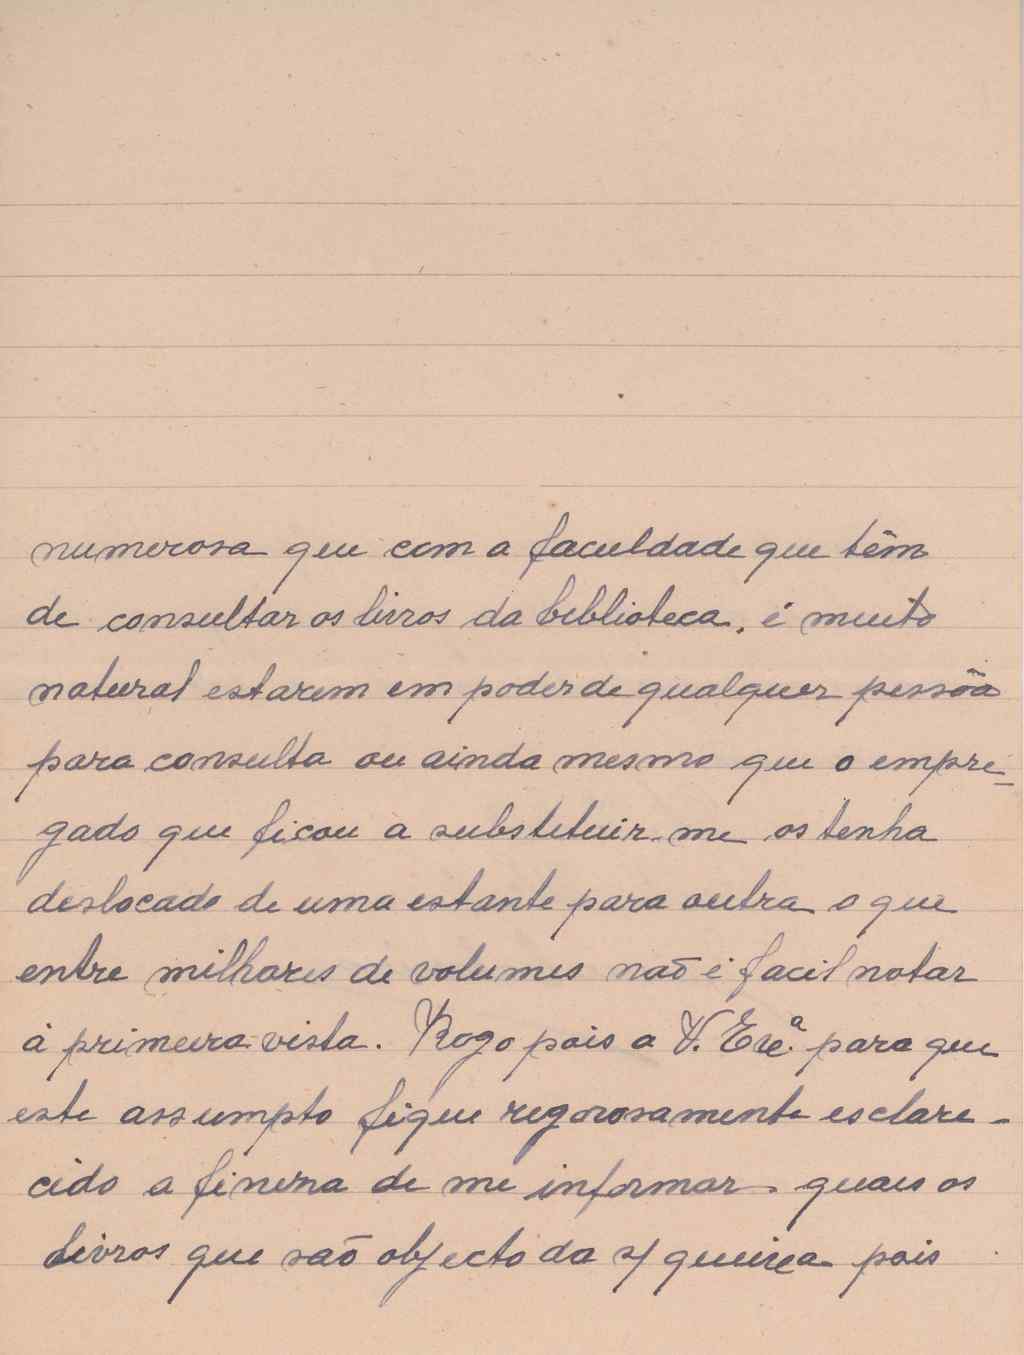 numerosa que com a faculdade que têm
de consultar os livros da biblioteca, é muito
natural estarem em poder de qualquer pessôa
para consulta ou ainda mesmo que o empre-
gado que ficou a substituir-me os tenha
deslocado de uma estante para outra o que
entre milhares de volumes naõ é facil notar
á primeira vista. Rogo pois a V. Exª. para que
este assumpto fique regorosamente esclare-
cido a fineza de me informar quais os
livros que saõ objecto da s/ queixa pois